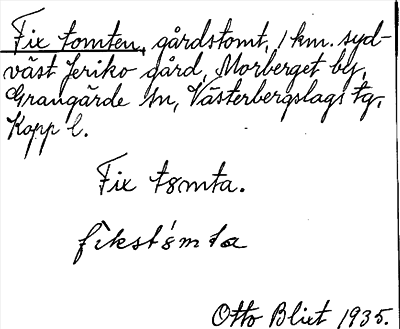 Fix tomten, gårdstomt, 1 km. syd-
väst Jeriko gård, Morberget by,
Grangärde sn, Västerbergslags tg,
Kopp l.
Fix tomta.
Otto Blixt 1935.